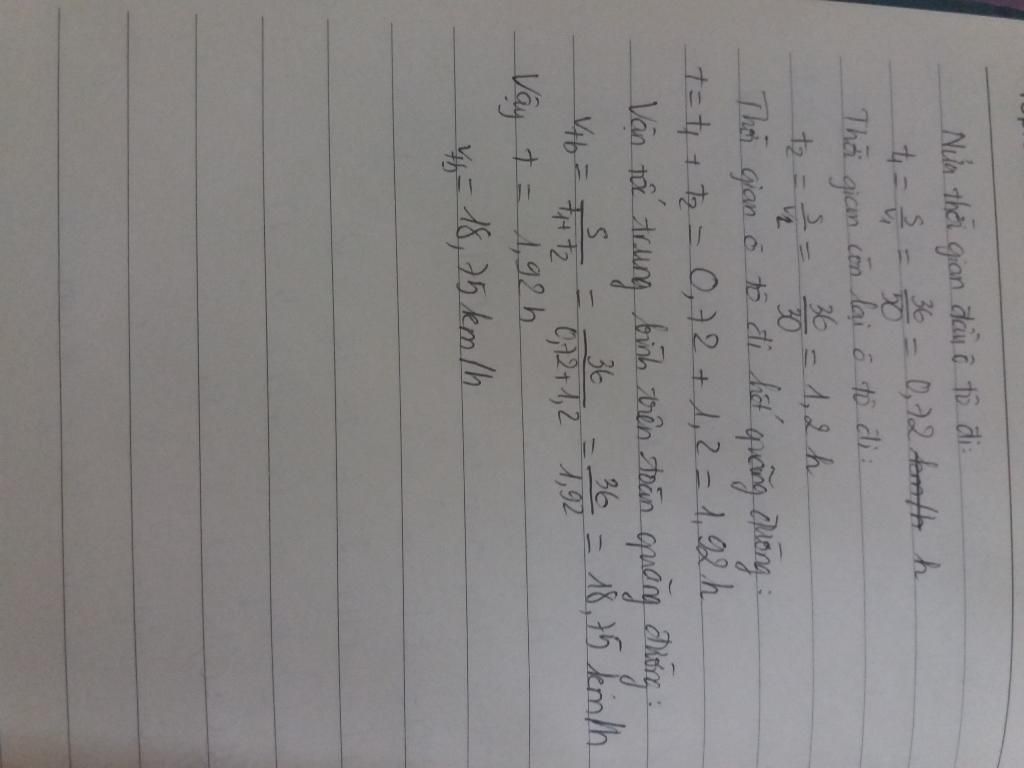 Nửa thời gian đầu ô tô đi:
t₁ = S/v₁ = 36/50 = 0,72 km/h h
Thời gian còn lại ô tô đi:
t₂ = S/v₂ = 36/30 = 1,2 h
Thời gian ô tô đi hết quãng đường:
t = t₁ + t₂ = 0,72 + 1,2 = 1,92 h
Vận tốc trung bình trên toàn quãng đường:
vtb = S/(t₁+t₂) = 36/(0,72+1,2) = 36/1,92 = 18,75 km/h
Vậy t = 1,92 h
vtb = 18,75 km/h